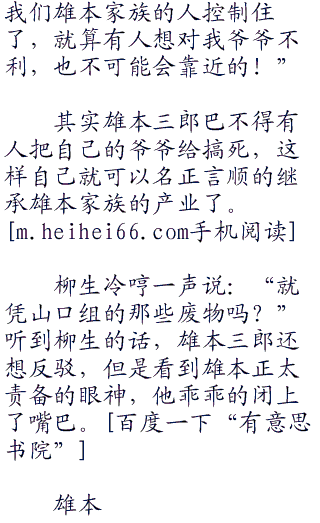 我们雄本家族的人控制住
了，就算有人想对我爷爷不
利，也不可能会靠近的！”
其实雄本三郎巴不得有
人把自己的爷爷给搞死，这
样自己就可以名正言顺的继
承雄本家族的产业了。
[m.heihei66.com手机阅读]
柳生冷哼一声说：“就
凭山口组的那些废物吗？”
听到柳生的话，雄本三郎还
想反驳，但是看到雄本正太
责备的眼神，他乖乖的闭上
了嘴巴。[百度一下“有意思
书院”]
雄本